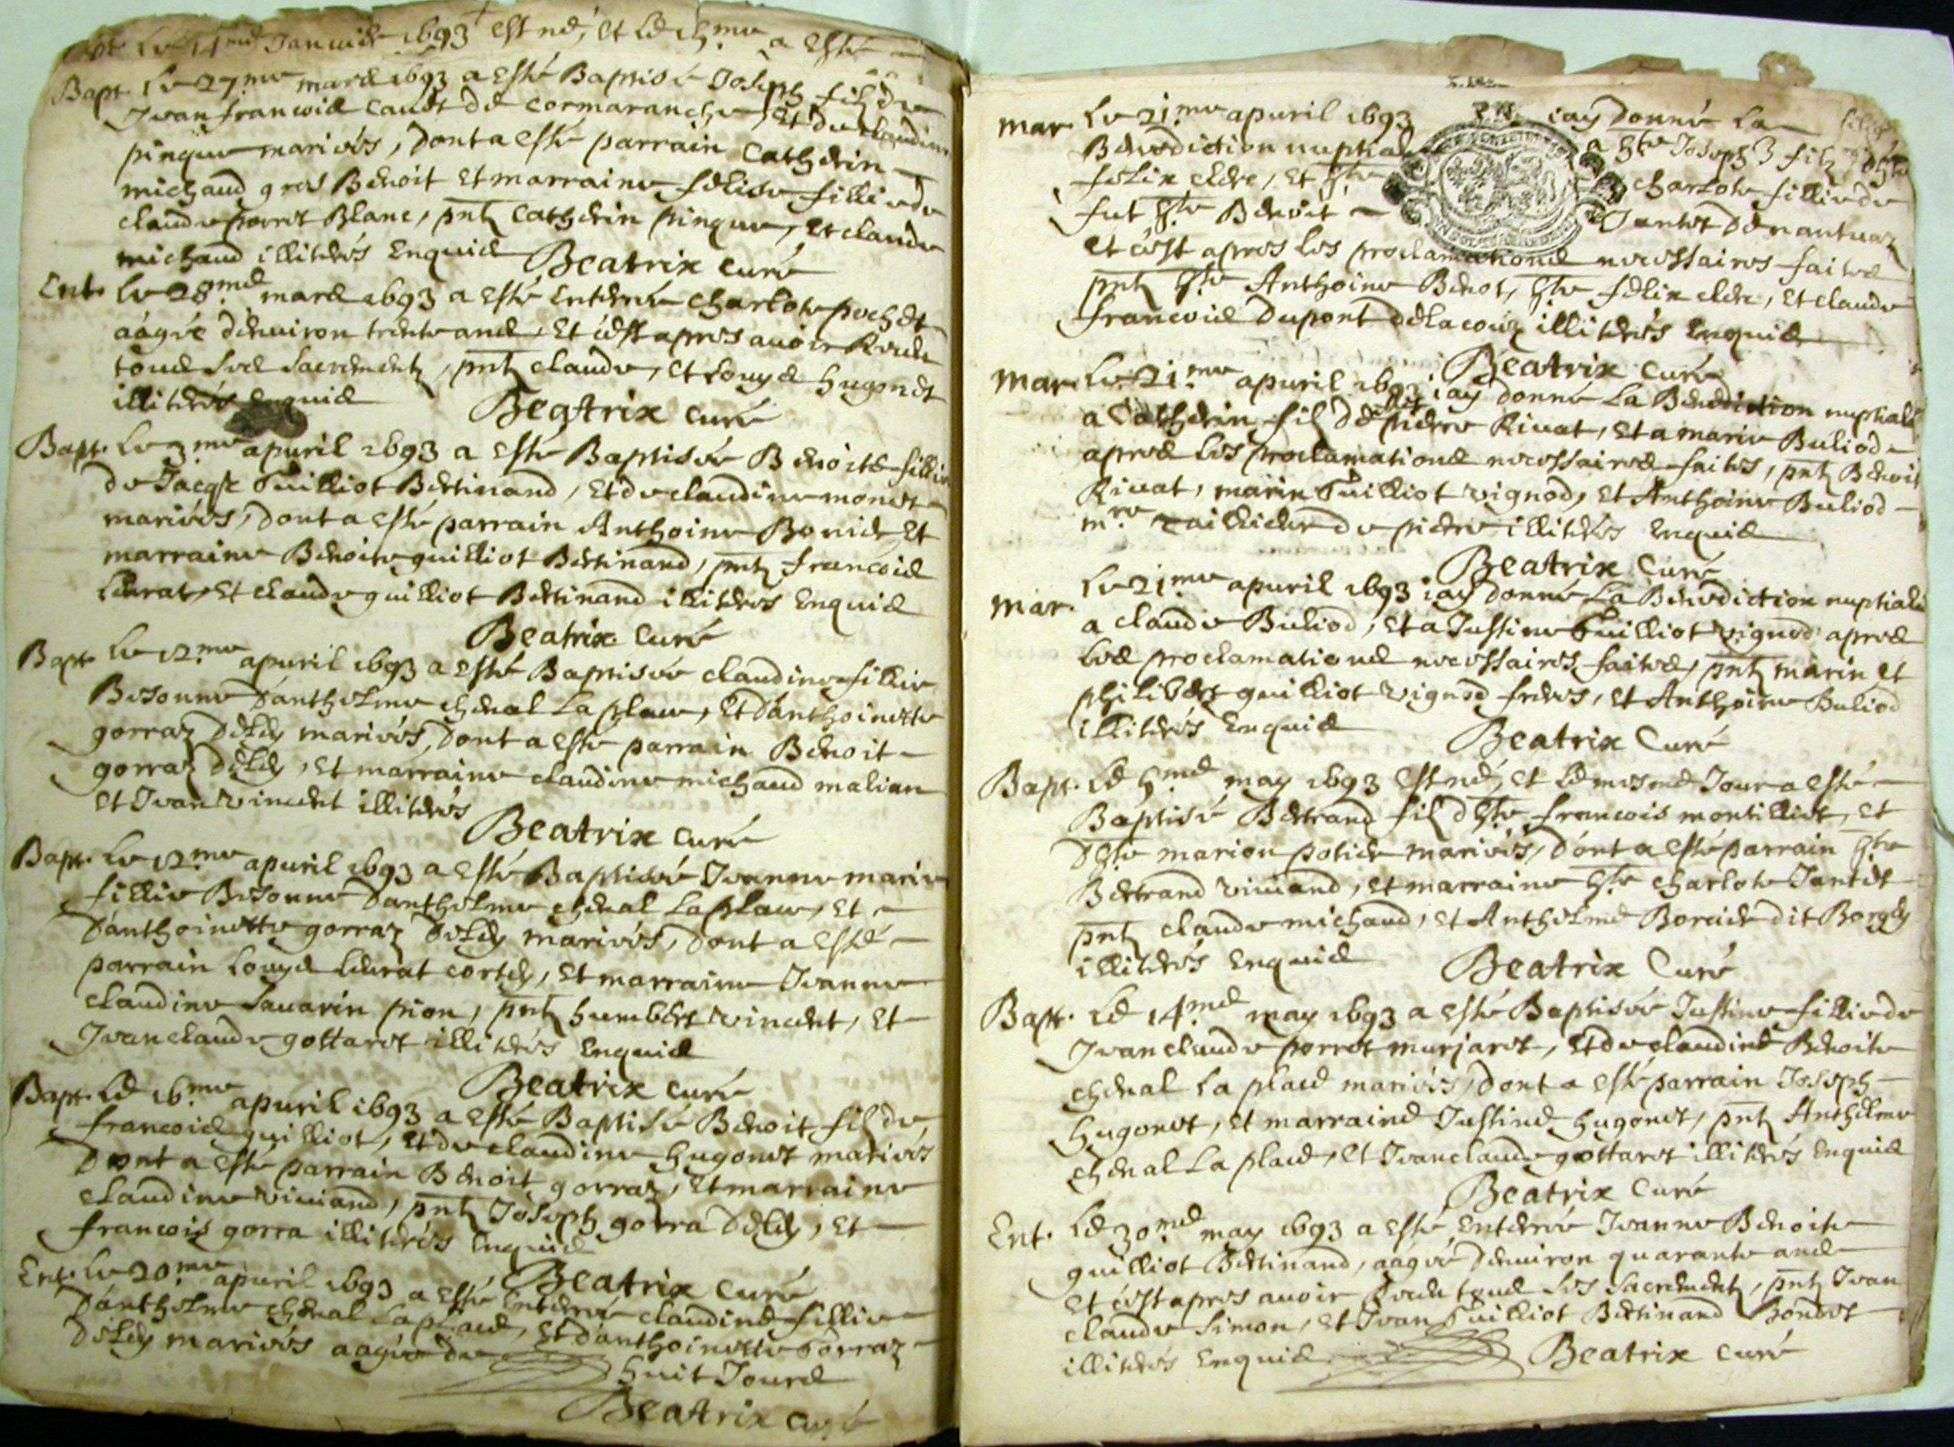 Le 14me Januier 1693 est né, et le a esté
Bapt. Le 27.me mars 1693 a esté Baptisé Joseph fil de
Jean francois caudt de cormaranche, et de claudine
pinque mariés, dont a esté parrain Catherin
michaud gros Benoit et marraine felise fillie de
claude porret Blanc, pnts Catherin pinque, et claude
michaud illiterés Enquis Beatrix curé
Ent. Le 28.me mars 1693 a esté Enterrée charlote pochet
aagée d'enuiron trente ans, et c'est apres auoir Receu
tous ses sacrements, pnts claude, et Louys hugonet
illiterés Enquis Beatrix curé
Bapt. Le 3.me apuril 1693 a esté Baptisée Benoite fillie
de Jacqs Guilliot Bertinand, et de claudine monet
mariés, dont a esté parrain Anthoine Bouier et
marraine Benoite guilliot Bertinand, pnts francois
Liurat, et claude guilliot Bertinand illiterés Enquis
Beatrix curé
Bapt. Le 12.me apuril 1693 a esté Baptisée claudine fillie
Besonne d'anthelme cheual La place, et d'anthoinette
gorraz dély mariés, dont a esté parrain Benoit
gorraz dély, et marraine claudine michaud malian
et Jean vincent illiterés
Beatrix curé
Bapt. Le 12.me apuril 1693 a esté Baptisée Jeanne marie
fillie Besonne d'anthelme cheual La place, et
d'anthoinette gorraz dély mariés, dont a esté
parrain Louys Liurat cortey, et marraine Jeanne
claudine sauarin pion, pnts humbert vincent, et
Jean claude gottaret illiterés Enquis
Beatrix curé
Bapt. Le 16.me apuril 1693 a esté Baptisé Benoit fil de
francois guilliot, et de claudine hugonet mariés
dont a esté parrain Benoit gorraz, et marraine
claudine viuiand, pnts Joseph gorra dély, et
francois gorra illiterés Enquis
Beatrix curé
Ent. Le 20.me apuril 1693 a esté Enterrée claudine fillie
d'anthelme cheual La place, et d'anthoinette Gorraz
dély mariés aagée de huit Jours
Beatrix curé
mar. Le 21.me apuril 1693 iay donné La
Benediction nuptiale a hte Joseph filz d'hte
felix eldre, et hte charlote fillie de
fut hte Benoit Jantet de nantuaz
et c'est apres les proclamations necessaires faites
pnts hte Anthoine Benot, hte felix eldre, et claude
francois dupont de la couz illiterés Enquis
Beatrix curé
mar. Le 21.me apuril 1693 iay donné La Benediction nuptiale
a Catherin fil de fut pierre Riuat, et a marie Buliod
apres les proclamations necessaires faites, pnts Benoit
Riuat, marin Guilliot vignod, et Anthoine Buliod
mre tallieur de pierre illiterés Enquis
Beatrix curé
mar. Le 21.me apuril 1693 iay donné La Benediction nuptiale
a claude Buliod, et a Justine Guilliot vignod apres
les proclamations necessaires faites, pnts marin et
philibert guilliot vignod freres, et Anthoine Buliod
illiterés Enquis Beatrix Curé
Bapt. Le 5.me may 1693 est né, et Le mesme Jour a esté
Baptisé Bertrand fil d'hte francois montilliet, et
d'hte marion potier mariés, dont a esté parrain hte
Bertrand viuiand, et marraine hte charlote Jantet
pnts claude michaud, et Anthelme Borcier dit Borgey
illiterés Enquis Beatrix Curé
Bapt. Le 14.me may 1693 a esté Baptisée Justine fillie de
Jean claude porret murjaret, et de claudine Benoite
cheual La place mariés, dont a esté parrain Joseph
hugonet, et marraine Justine hugonet, pnts Anthelme
cheual La place, et Jean claude gottaret illiterés Enquis
Beatrix Curé
Ent. Le 30.me may 1693 a esté Enterrée Jeanne Benoite
guilliot Bertinand, aagée d'enuiron quarante ans
et c'est apres auoir Receu tous ses sacrements, pnts Jean
claude simon, et Jean Guilliot Bertinand Bondet
illiterés Enquis Beatrix curé